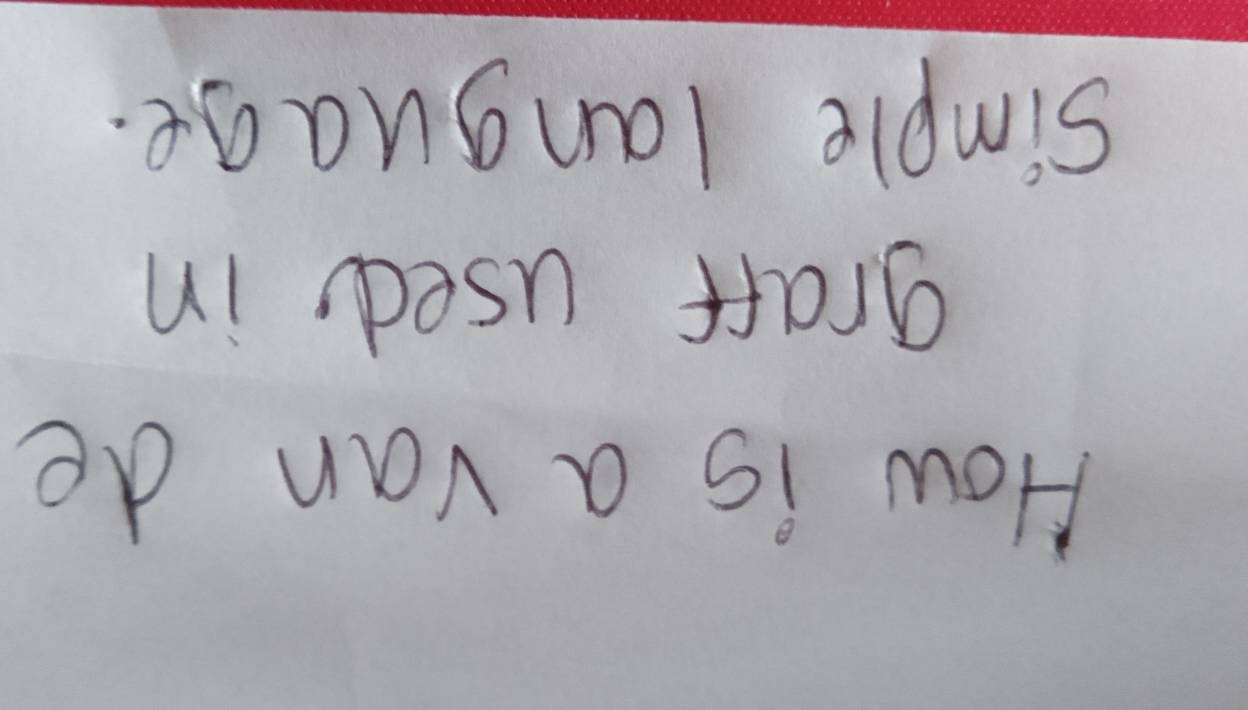 How is a van de
graff used in
simple language.